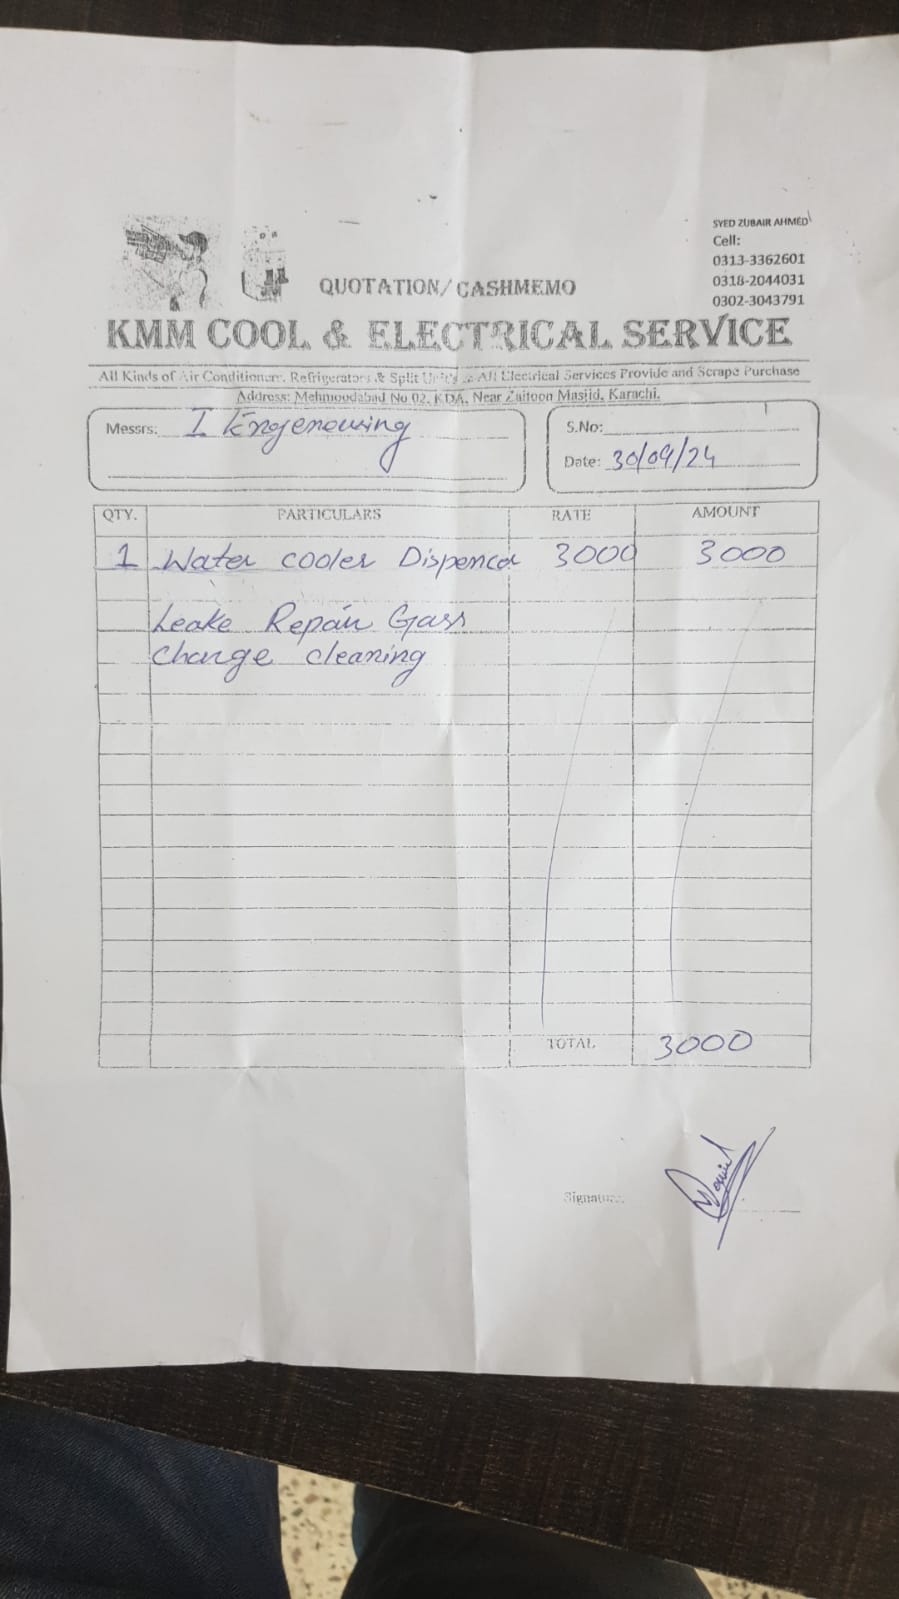 SYED ZUBAIR AHMED
Cell:
0313-3362601
0318-2044031
0302-3043791
QUOTATION/CASHMEMO
KMM COOL & ELECTRICAL SERVICE
All Kinds of Air Conditioners, Refrigerators & Split Unit's & All Electrical Services Provide and Scrape Purchase
Address: Mehmoodabad No 02, KDA, Near Zaitoon Masjid, Karachi.
Messrs: I Engenowing
S.No:
Date: 30/09/24
QTY. PARTICULARS RATE AMOUNT
1 Water cooler Dispencer 3000 3000
Leake Repair Gass
Change cleaning
TOTAL 3000
Signature: